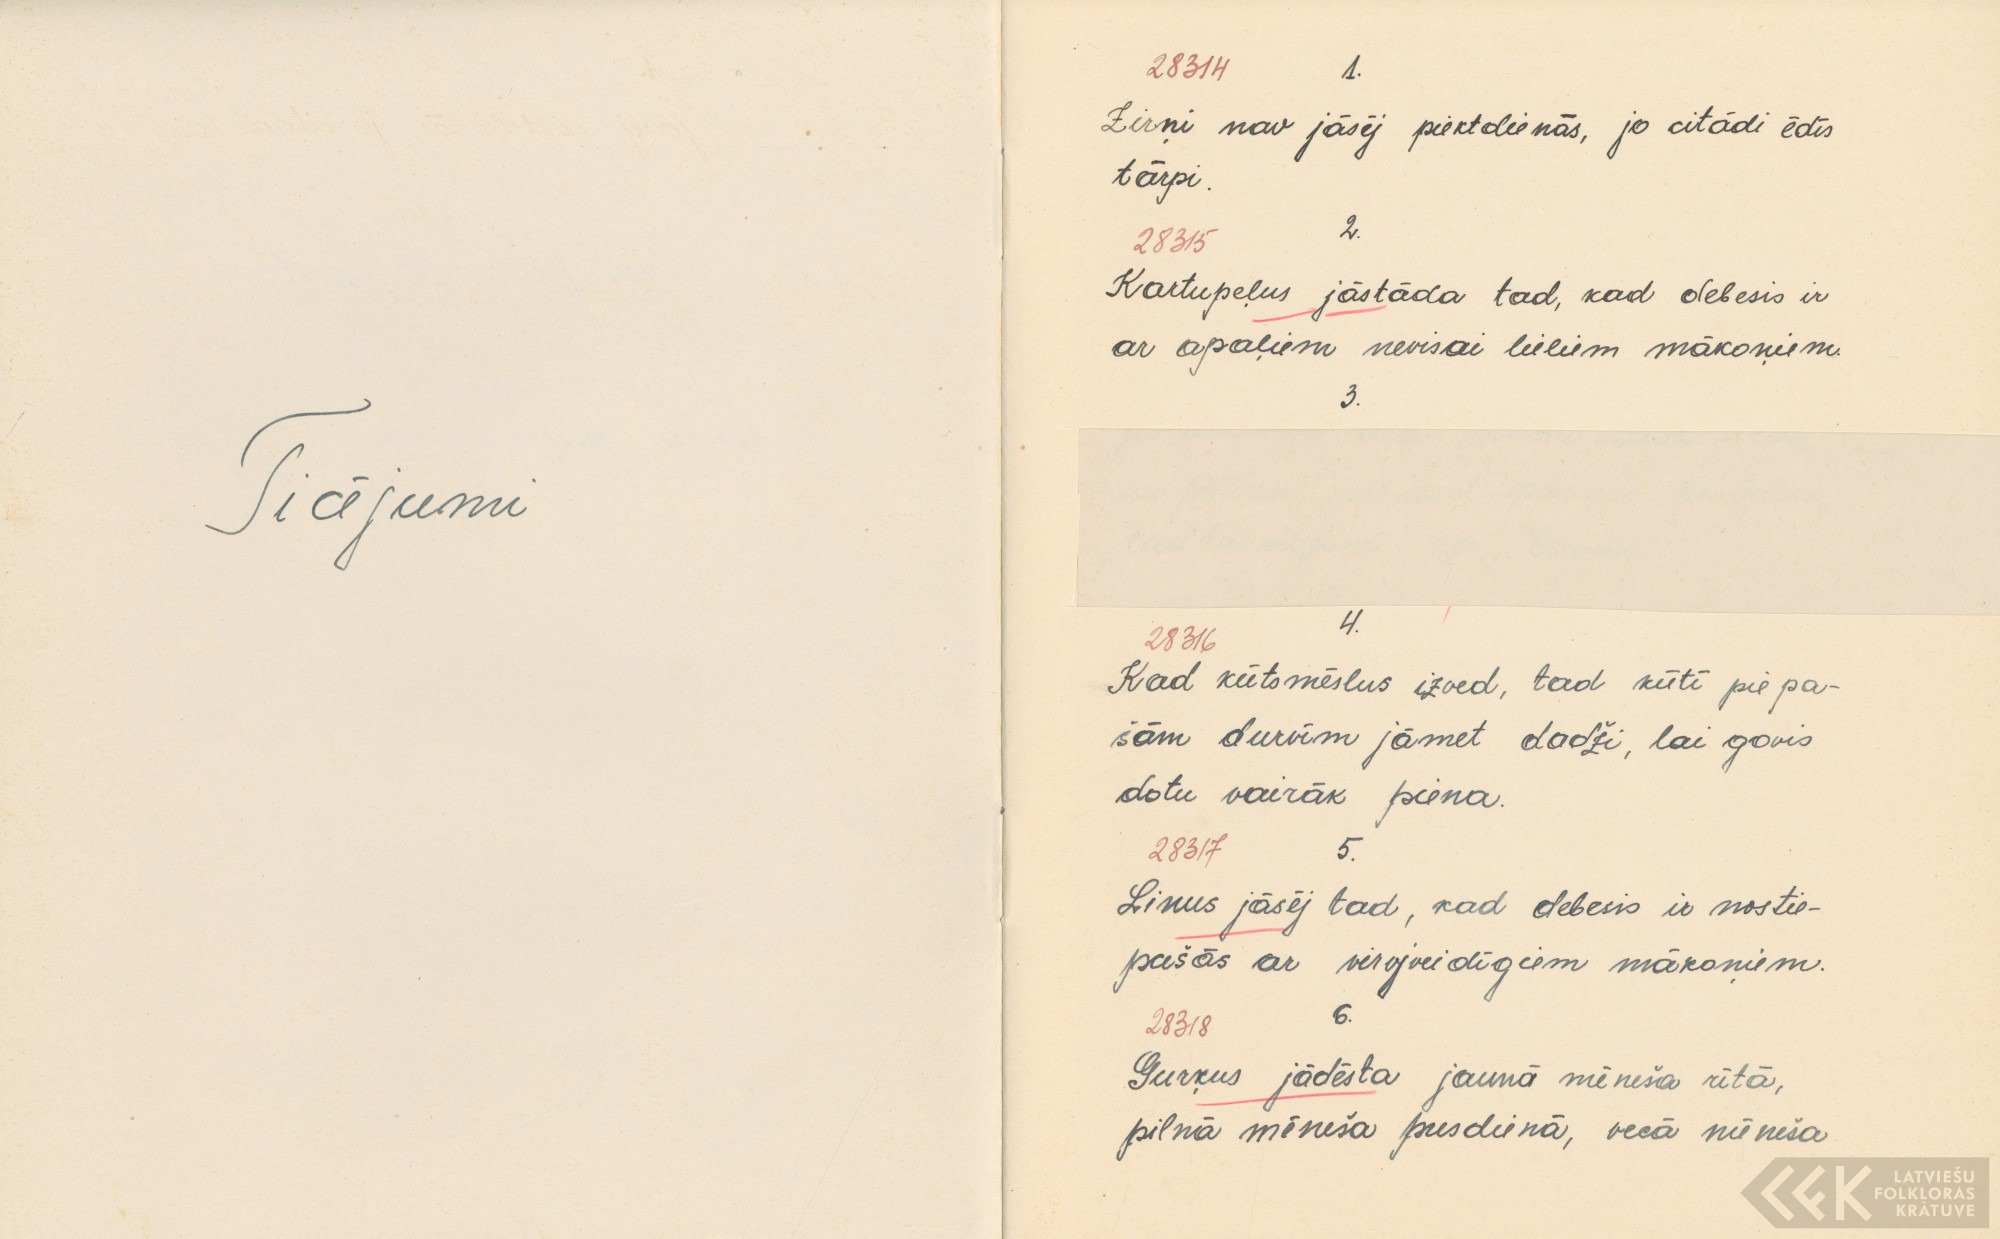 Ticējumi
28314 1.
Zirņi nav jāsēj piektdienās, jo citādi ēdīs
tārpi.
28315 2.
Kartupeļus jāstāda tad, kad debesis ir
ar apaļiem nevisai lieliem mākoņiem.
3.
28316 4.
Kad kūtsmēslus izved, tad kūtī pie pa-
šām durvīm jāmet dadži, lai govis
dotu vairāk piena.
28317 5.
Linus jāsēj tad, kad debesis ir nostie-
pušās ar virvjveidīgiem mākoņiem.
28318 6.
Gurķus jādēsta jaunā mēneša rītā,
pilnā mēneša pusdienā, vecā mēneša
LATVIEŠU
FOLKLORAS
KRĀTUVE